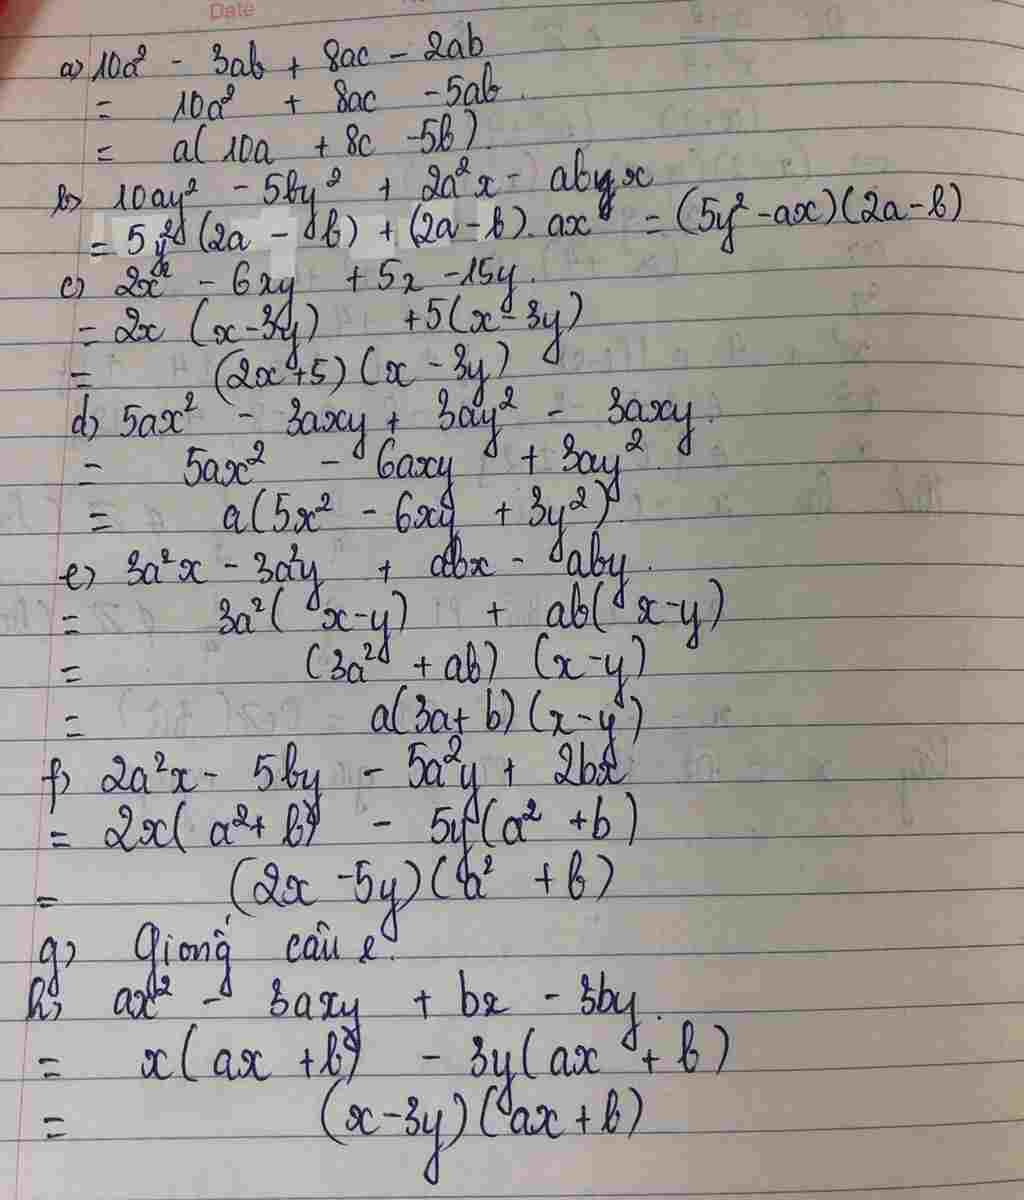 Date
a) 10a² - 3ab + 8ac - 2ab
= 10a² + 8ac - 5ab.
= a( 10a + 8c - 5b).
b) 10ay² - 5by² + 2a²x - abyx
= 5y² (2a - b) + (2a - b). ax = (5y² - ax) (2a - b)
c) 2x² - 6xy + 5x - 15y.
= 2x (x - 3y) + 5 (x - 3y)
= (2x + 5) (x - 3y)
d) 5ax² - 3axy + 3ay² - 3axy.
= 5ax² - 6axy + 3ay².
= a(5x² - 6xy + 3y²).
e) 3a²x - 3a²y + abx - aby.
= 3a² ( x - y) + ab( x - y)
= (3a² + ab) (x - y)
= a(3a + b) (x - y)
f) 2a²x - 5by - 5a²y + 2bx
= 2x( a² + b) - 5y (a² + b)
= (2x - 5y) (a² + b)
g) Giống câu e.
h) ax² - 3axy + bx - 3by.
= x( ax + b) - 3y( ax + b)
= (x - 3y) (ax + b)